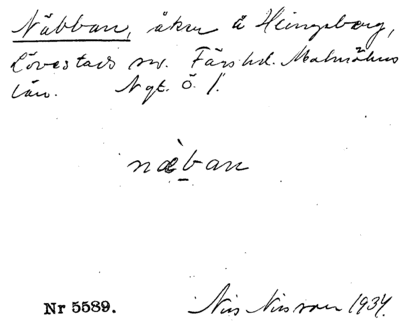 Näbban, åker å Heingsberg,
Lövestads sn. Färs hd. Malmöhus
län. Ngt. Ö. /.
næ̀ban
Nr 5589.
Nils Nilsson 1934.